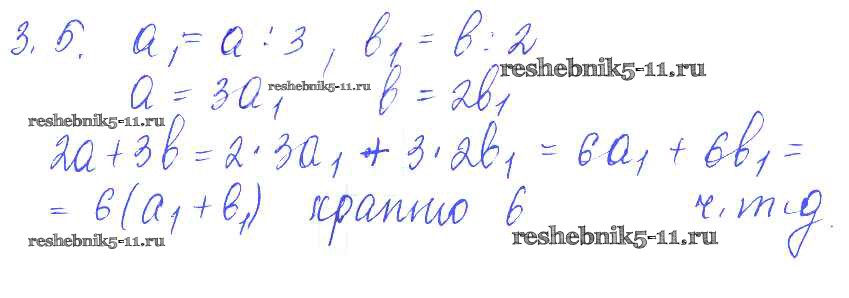 3.5. a₁ = a : 3, в₁ = в : 2
reshebnik5-11.ru
a = 3a₁ reshebnik5-11.ru в = 2в₁
reshebnik5-11.ru
2a + 3в = 2 · 3a₁ + 3 · 2в₁ = 6a₁ + 6в₁ =
= 6(a₁ + в₁) кратно 6 ч.т.д.
reshebnik5-11.ru reshebnik5-11.ru